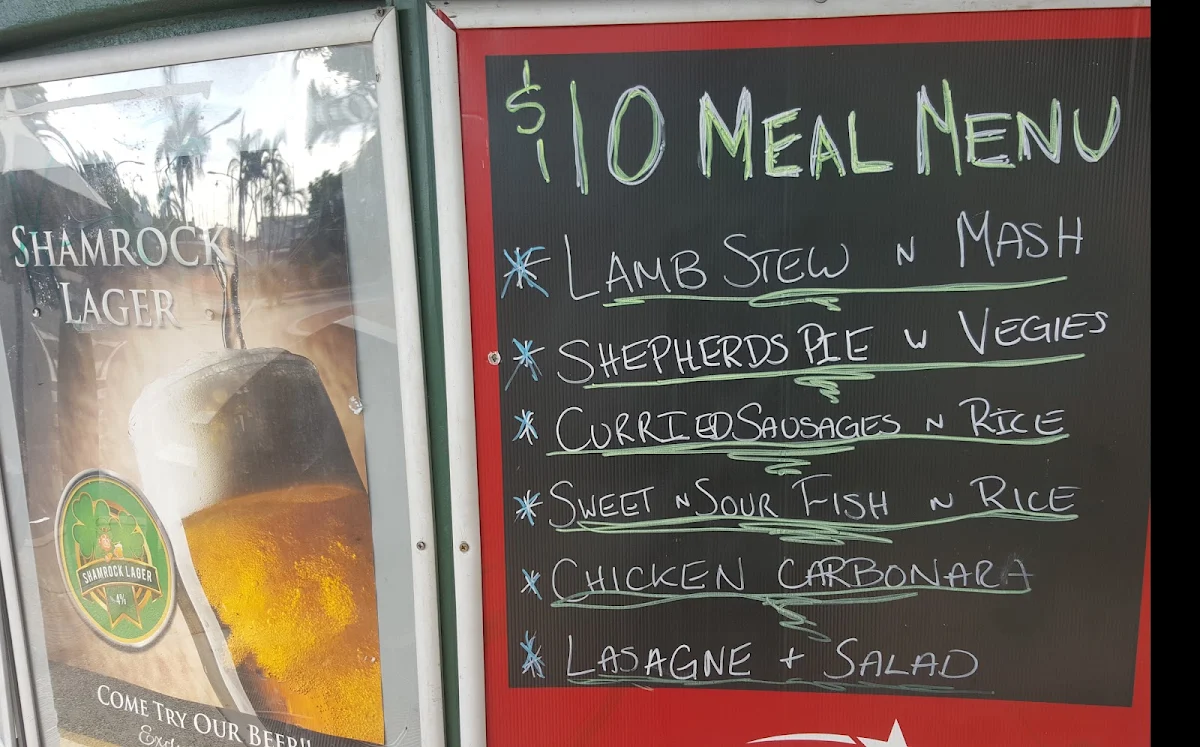 SHAMROCK
LAGER
SHAMROCK LAGER
4%
COME TRY OUR BEER!!
$10 MEAL MENU
* LAMB STEW N MASH
* SHEPHERDS PIE W VEGIES
* CURRIED SAUSAGES N RICE
* SWEET N SOUR FISH N RICE
* CHICKEN CARBONARA
* LASAGNE + SALAD